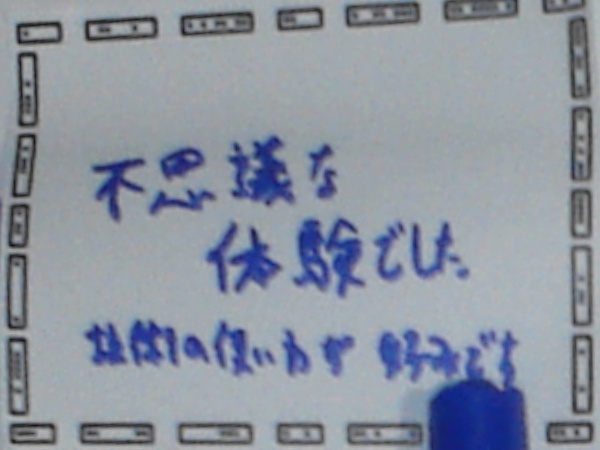 不思議な
体験でした。
技術の使い方が好みです